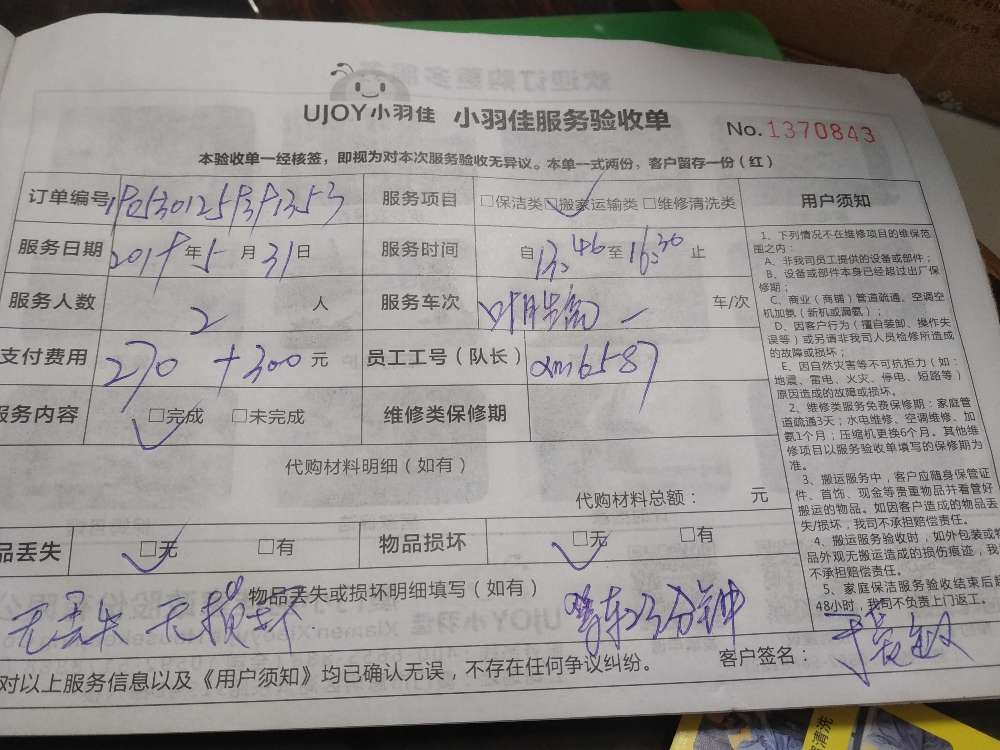 UJOY小羽佳 小羽佳服务验收单
No. 1370843
本验收单一经核签，即视为对本次服务验收无异议。本单一式两份，客户留存一份（红）
订单编号 服务项目 □保洁类 □搬家运输类 □维修清洗类
服务日期 2019年5月31日 服务时间 自13:46至16:30止
服务人数 2人 服务车次 一 车/次
支付费用 270+300元 员工工号（队长） xm6587
服务内容 □完成 □未完成 维修类保修期
代购材料明细（如有）
代购材料总额： 元
品丢失 □无 □有 物品损坏 □无 □有
物品丢失或损坏明细填写（如有）
无丢失 无损坏 等车23分钟
对以上服务信息以及《用户须知》均已确认无误，不存在任何争议纠纷。 客户签名：
用户须知
1、下列情况不在维修项目的维保范
围之内：
A、非我司员工提供的设备或部件；
B、设备或部件本身已经超过出厂保
修期；
C、商业（商铺）管道疏通、空调空
机加氨（新机或漏氨）；
D、因客户行为（擅自装卸、操作失
误等）或另请非我司人员检修所造成
的故障或损坏；
E、因自然灾害等不可抗拒力（如：
地震、雷电、火灾、停电、短路等）
原因造成的故障或损坏。
2、维修类服务免费保修期：家庭管
道疏通3天；水电维修、空调维修、加
氨1个月；压缩机更换6个月。其他维
修项目以服务验收单填写的保修期为
准。
3、搬运服务中，客户应随身保管证
件、首饰、现金等贵重物品并看管好
搬运的物品。如因客户造成的物品丢
失/损坏，我司不承担赔偿责任。
4、搬运服务验收时，如外包装或物
品外观无搬运造成的损伤痕迹，我
不承担赔偿责任。
5、家庭保洁服务验收结束后超
48小时，我司不负责上门返工。